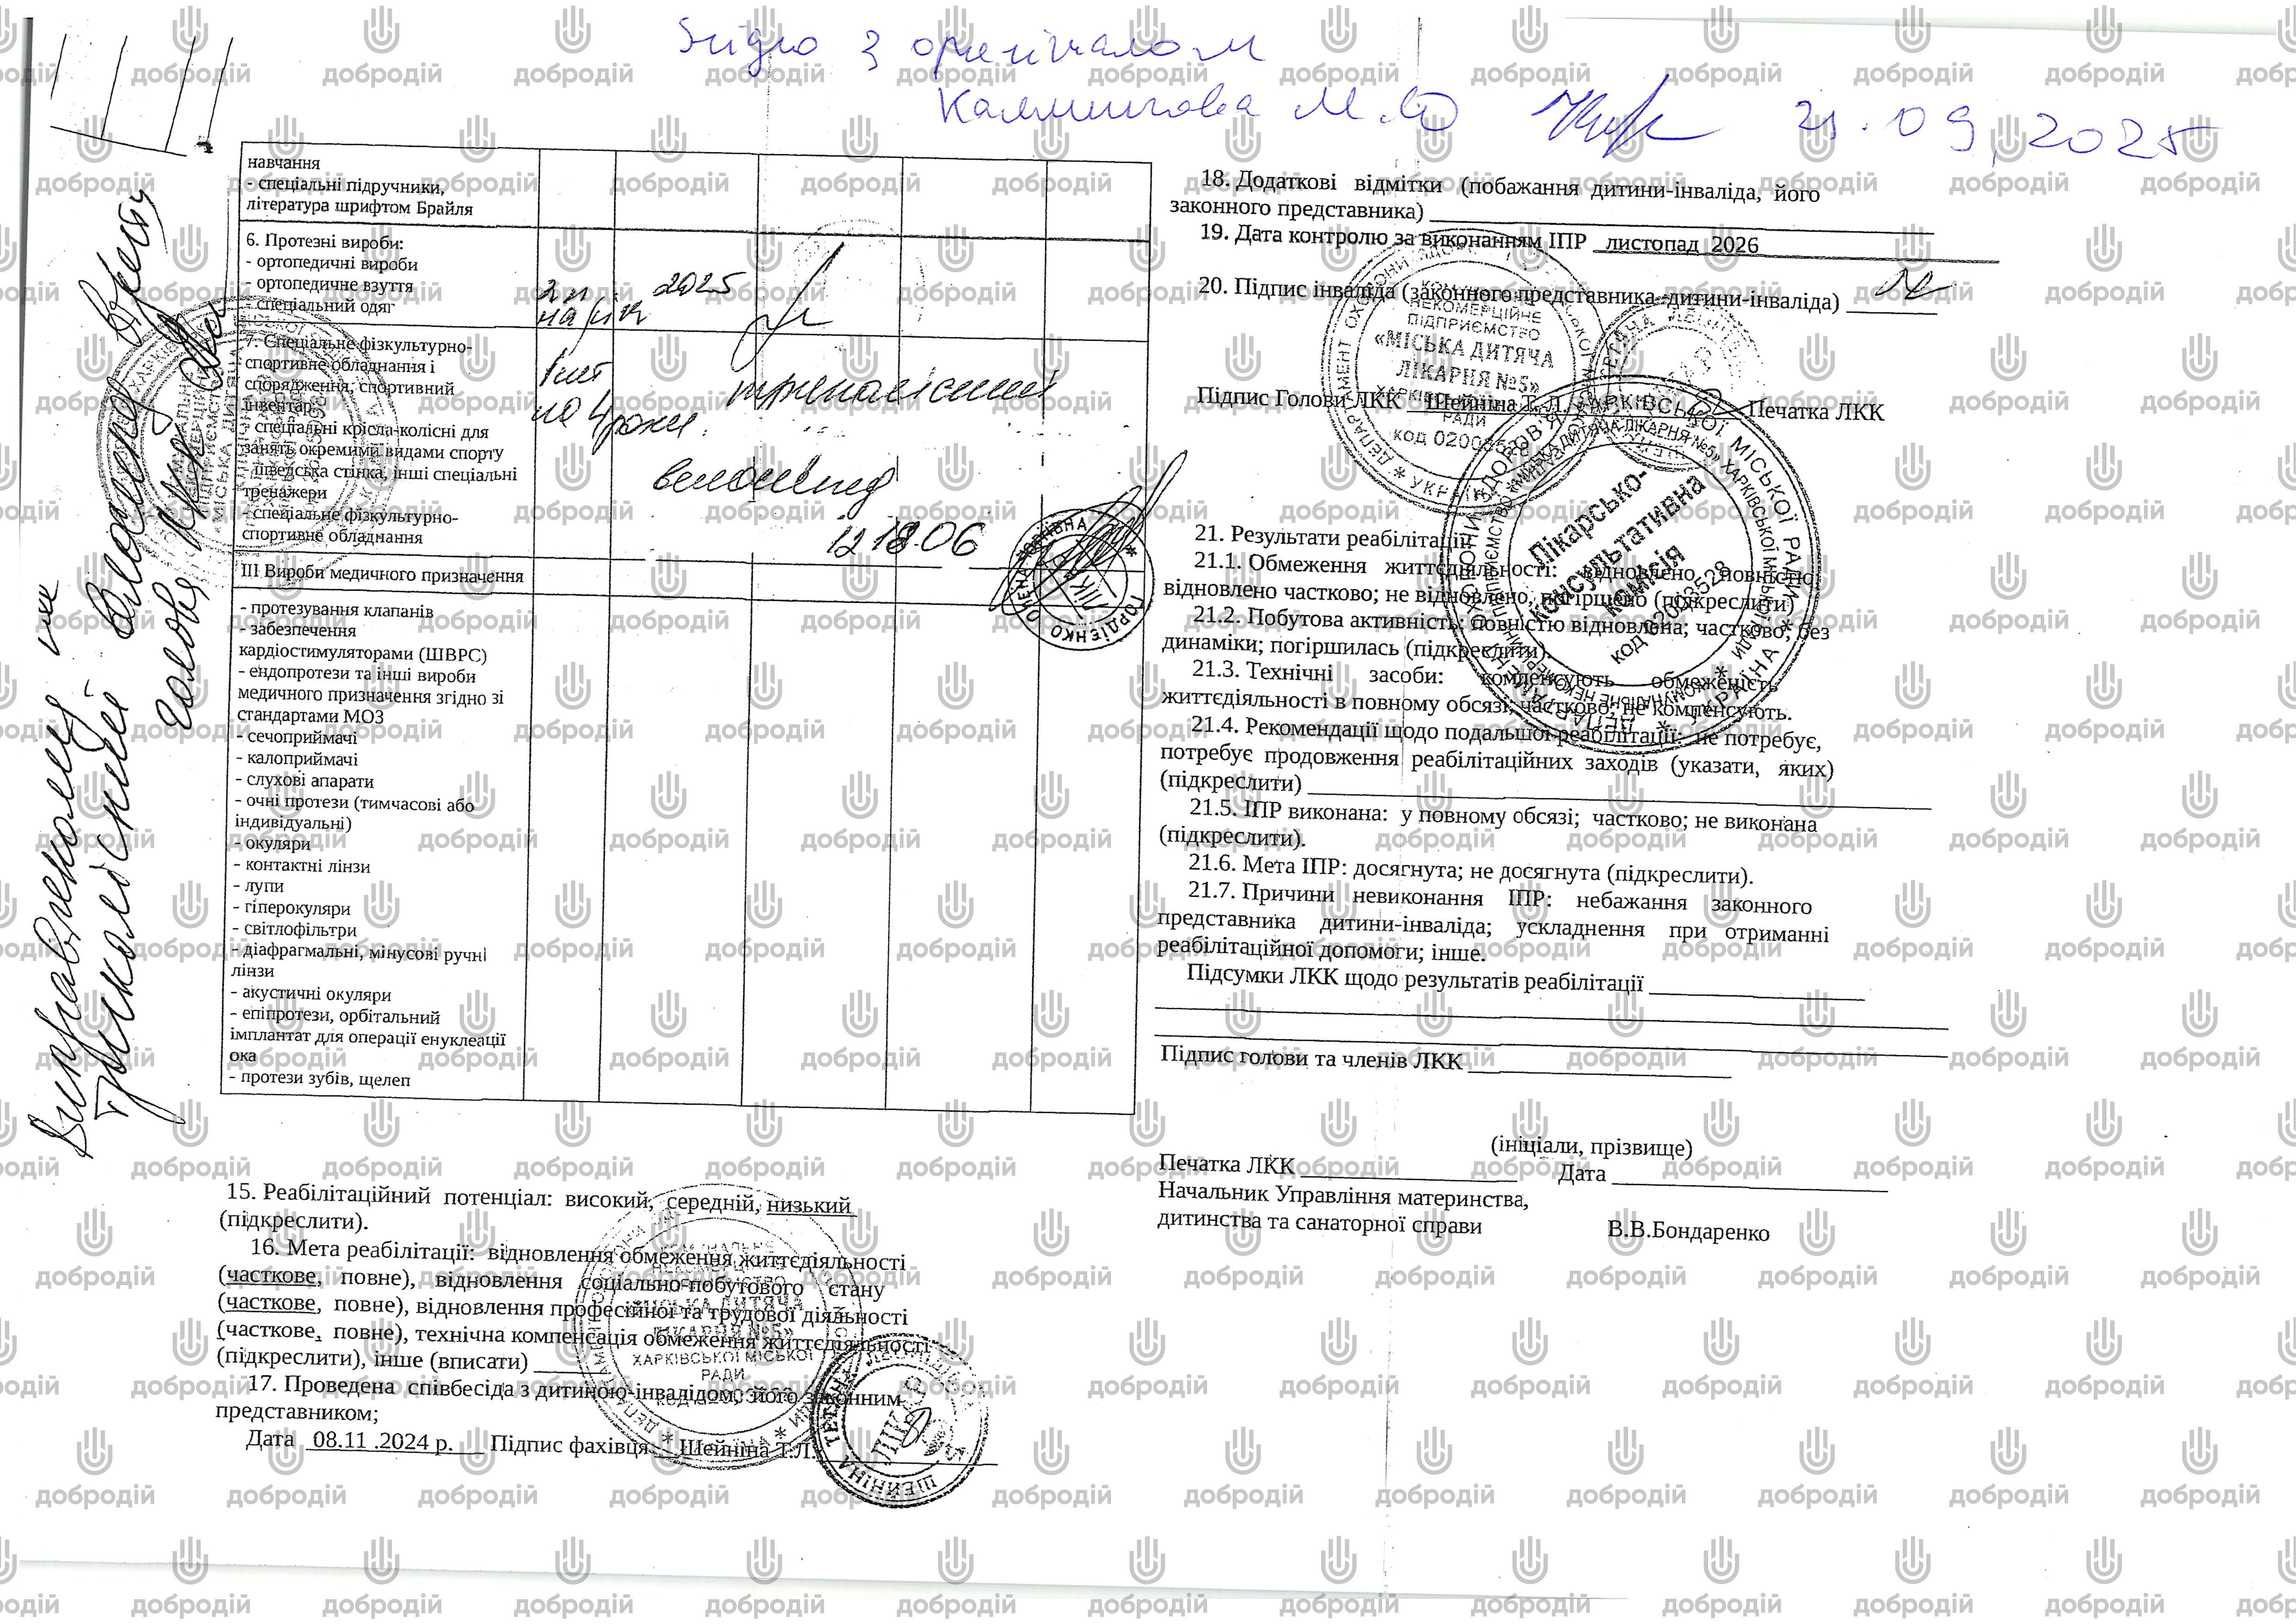 Згідно з оригіналом
М.Ю 21.09.2025
навчання
- спеціальні підручники,
література шрифтом Брайля
6. Протезні вироби:
- ортопедичні вироби
- ортопедичне взуття
- спеціальний одяг
2 п на рік 2025
7. Спеціальне фізкультурно-
спортивне обладнання і
спорядження, спортивний
інвентар:
- спеціальні крісла-колісні для
занять окремими видами спорту
- шведська стінка, інші спеціальні
тренажери
- спеціальне фізкультурно-
спортивне обладнання
1 шт
на 4 роки.
триколісний
велосипед
12 18.06
ГОРДІЄНКО ОЛЕНА
III Вироби медичного призначення
- протезування клапанів
- забезпечення
кардіостимуляторами (ШВРС)
- ендопротези та інші вироби
медичного призначення згідно зі
стандартами МОЗ
- сечоприймачі
- калоприймачі
- слухові апарати
- очні протези (тимчасові або
індивідуальні)
- окуляри
- контактні лінзи
- лупи
- гіперокуляри
- світлофільтри
- діафрагмальні, мінусові ручні
лінзи
- акустичні окуляри
- епіпротези, орбітальний
імплантат для операції енуклеації
ока
- протези зубів, щелеп
Виправленому
триколісний велосипед вірити
Голова
15. Реабілітаційний потенціал: високий, середній, низький
(підкреслити).
16. Мета реабілітації: відновлення обмеження життєдіяльності
(часткове, повне), відновлення соціально-побутового стану
(часткове, повне), відновлення професійної та трудової діяльності
(часткове, повне), технічна компенсація обмеження життєдіяльності
(підкреслити), інше (вписати)
17. Проведена співбесіда з дитиною-інвалідом, його законним
представником;
Дата 08.11 .2024 р. Підпис фахівця Шейніна Т.Л.
«МІСЬКА ДИТЯЧА
ЛІКАРНЯ №5»
ХАРКІВСЬКОЇ МІСЬКОЇ
РАДИ
ШЕЙНІНА ТЕТЯНА
ЛІКАР
18. Додаткові відмітки (побажання дитини-інваліда, його
законного представника)
19. Дата контролю за виконанням ІПР листопад 2026
20. Підпис інваліда (законного представника дитини-інваліда)
НЕКОМЕРЦІЙНЕ
ПІДПРИЄМСТВО
«МІСЬКА ДИТЯЧА
ЛІКАРНЯ №5»
РАДИ
Підпис Голови ЛКК Шейніна Т. Л. Печатка ЛКК
Лікарсько-
консультативна
комісія
код 02003528
21. Результати реабілітації
21.1. Обмеження життєдіяльності: відновлено повністю;
відновлено частково; не відновлено, погіршено (підкреслити)
21.2. Побутова активність: повністю відновлена; частково; без
динаміки; погіршилась (підкреслити).
21.3. Технічні засоби: компенсують обмеженість
життєдіяльності в повному обсязі; частково; не компенсують.
21.4. Рекомендації щодо подальшої реабілітації: не потребує,
потребує продовження реабілітаційних заходів (указати, яких)
(підкреслити)
21.5. ІПР виконана: у повному обсязі; частково; не виконана
(підкреслити).
21.6. Мета ІПР: досягнута; не досягнута (підкреслити).
21.7. Причини невиконання ІПР: небажання законного
представника дитини-інваліда; ускладнення при отриманні
реабілітаційної допомоги; інше.
Підсумки ЛКК щодо результатів реабілітації
Підпис голови та членів ЛКК
(ініціали, прізвище)
Печатка ЛКК Дата
Начальник Управління материнства,
дитинства та санаторної справи В.В.Бондаренко
добродій